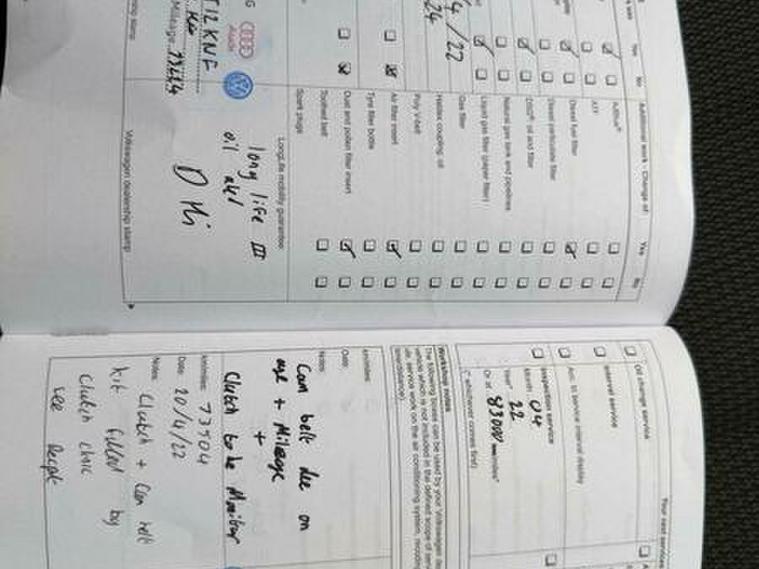 Additional work - Change of:
Yes
No
Yes
No
AdBlue®
ATF
Diesel fuel filter
Diesel particulate filter
DSG® oil and filter
Natural gas tank and pipelines
Liquid gas filter (paper filter)
Gas filter
Haldex coupling, oil
Poly V-belt
Air filter insert
Tyre filler bottle
Dust and pollen filter insert
Toothed belt
Spark plugs
4/22
24
LongLife mobility guarantee
long life III
oil
Audi
T12 KNF
Mileage
Volkswagen dealership stamp
Your next services
Oil change service
Interval service
Acc. to service interval display
Inspection service
Month 04
Year 22
Or at 83000 miles/
(whichever comes first)
Workshop notes
The following boxes can be used by your Volkswagen
vehicle which is not included in the defined scope of
service work on the air conditioning system,
km/miles:
Date:
Notes:
Cam belt due on
age + Mileage
+
Clutch to be Monitor
km/miles: 73904
Date: 20/4/22
Notes: Clutch + Cam belt
kit fitted by
Clutch clinic
see